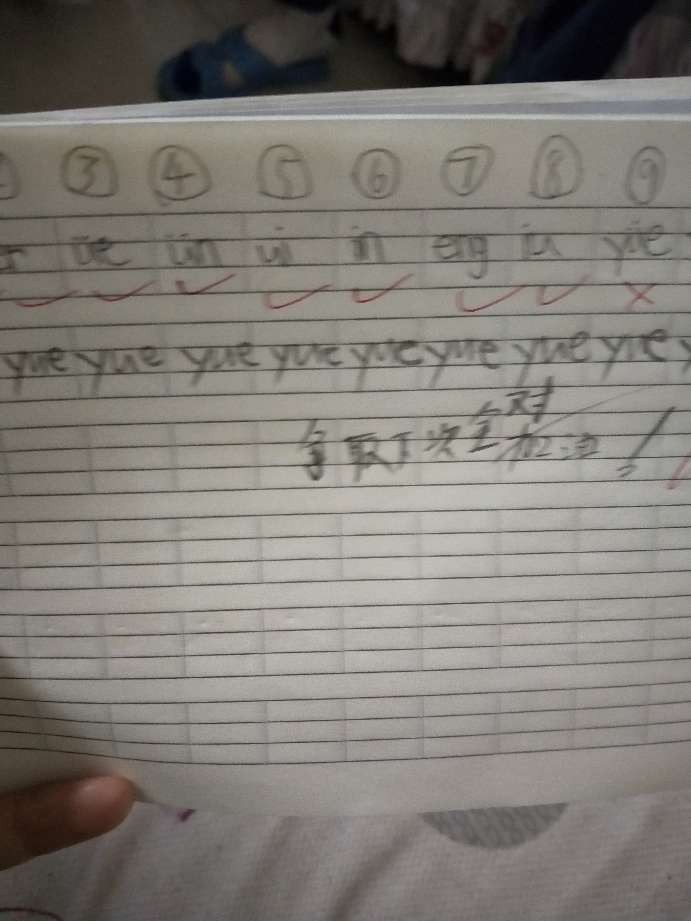 ③ ④ ⑤ ⑥ ⑦ ⑧ ⑨
üe ün ui in eng iu yüe
yue yue yue yue yue yue yue yue
争取下次全对
加油!